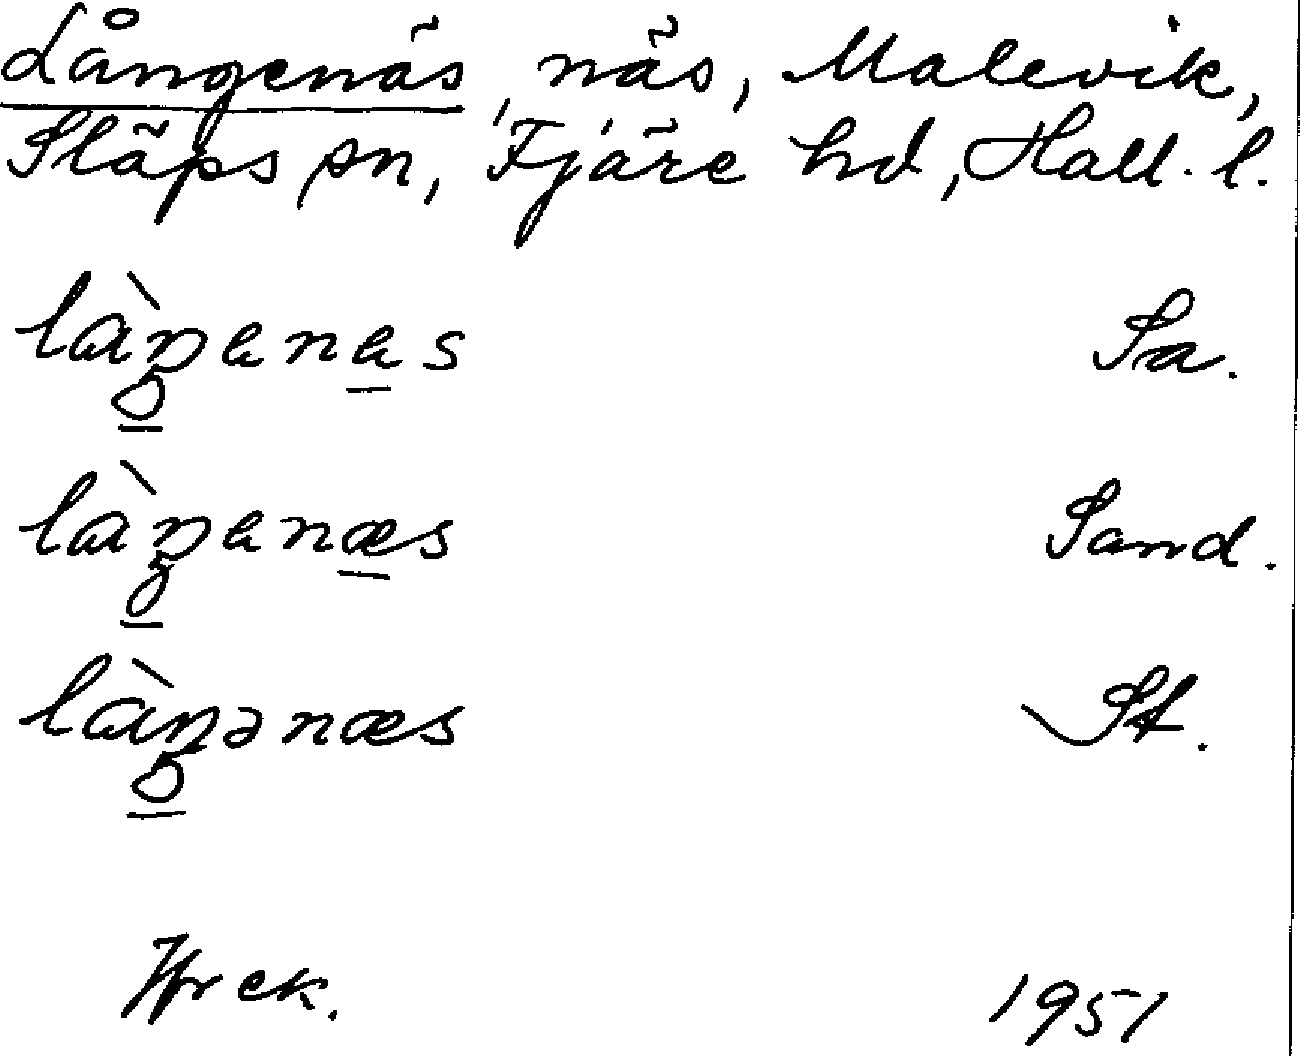 Långenäs, näs, Malevik,
Släps sn, Fjäre hd, Hall. l.
làŋenes Sa.
làŋenæs Sand.
làŋənæs St.
1951